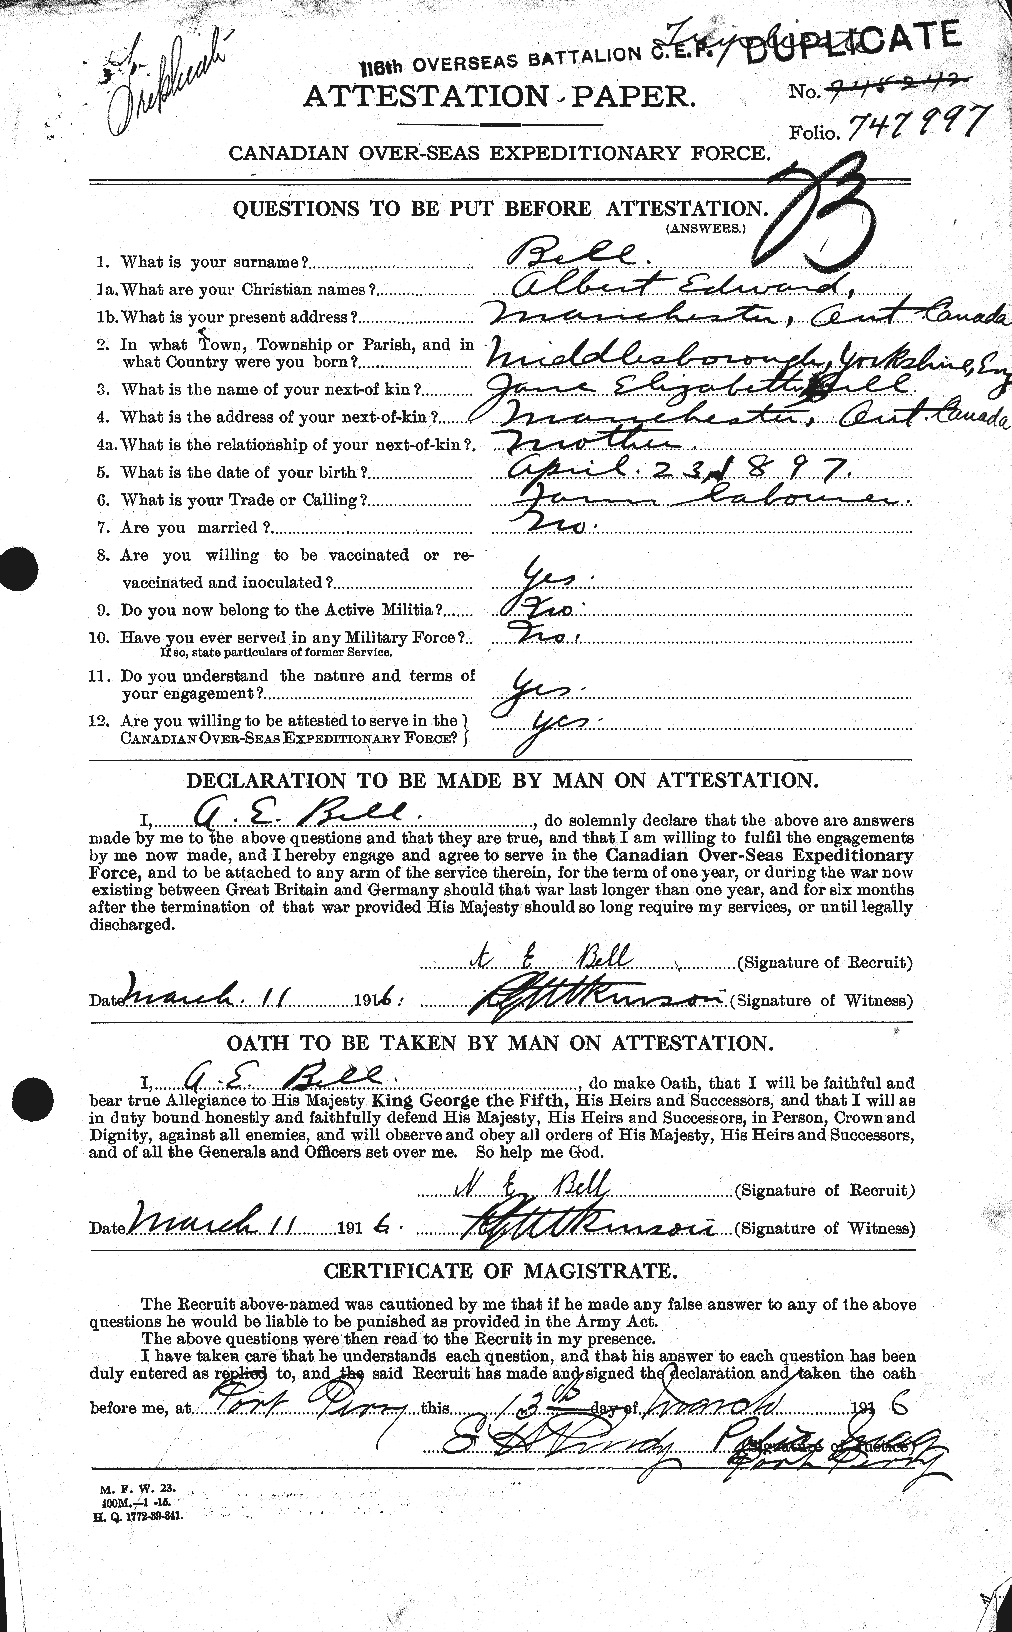 Triplicate
116th OVERSEAS BATTALION C.E.F. DUPLICATE
Triplicate
ATTESTATION PAPER.
No. 745242
Folio. 747997
CANADIAN OVER-SEAS EXPEDITIONARY FORCE.
B
QUESTIONS TO BE PUT BEFORE ATTESTATION.
(ANSWERS.)
1. What is your surname? Bell.
1a. What are your Christian names? Albert Edward,
1b. What is your present address? Manchester, Ont Canada
2. In what Town, Township or Parish, and in
what Country were you born? Middlesborough, Yorkshire, Eng
3. What is the name of your next-of kin? Jane Elizabeth Bell.
4. What is the address of your next-of-kin? Manchester, Ont. Canada
4a. What is the relationship of your next-of-kin? Mother.
5. What is the date of your birth? April. 23, 1897.
6. What is your Trade or Calling? Farm Labourer.
7. Are you married? No.
8. Are you willing to be vaccinated or re-
vaccinated and inoculated? Yes.
9. Do you now belong to the Active Militia? No.
10. Have you ever served in any Military Force? No.
If so, state particulars of former Service.
11. Do you understand the nature and terms of
your engagement? Yes.
12. Are you willing to be attested to serve in the
CANADIAN OVER-SEAS EXPEDITIONARY FORCE? } Yes.
DECLARATION TO BE MADE BY MAN ON ATTESTATION.
I, A. E. Bell., do solemnly declare that the above are answers
made by me to the above questions and that they are true, and that I am willing to fulfil the engagements
by me now made, and I hereby engage and agree to serve in the Canadian Over-Seas Expeditionary
Force, and to be attached to any arm of the service therein, for the term of one year, or during the war now
existing between Great Britain and Germany should that war last longer than one year, and for six months
after the termination of that war provided His Majesty should so long require my services, or until legally
discharged.
A E Bell (Signature of Recruit)
Date March. 11 1916. (Signature of Witness)
OATH TO BE TAKEN BY MAN ON ATTESTATION.
I, A. E. Bell., do make Oath, that I will be faithful and
bear true Allegiance to His Majesty King George the Fifth, His Heirs and Successors, and that I will as
in duty bound honestly and faithfully defend His Majesty, His Heirs and Successors, in Person, Crown and
Dignity, against all enemies, and will observe and obey all orders of His Majesty, His Heirs and Successors,
and of all the Generals and Officers set over me. So help me God.
A E Bell (Signature of Recruit)
Date March 11 1916. (Signature of Witness)
CERTIFICATE OF MAGISTRATE.
The Recruit above-named was cautioned by me that if he made any false answer to any of the above
questions he would be liable to be punished as provided in the Army Act.
The above questions were then read to the Recruit in my presence.
I have taken care that he understands each question, and that his answer to each question has been
duly entered as replied to, and the said Recruit has made and signed the declaration and taken the oath
before me, at Port Perry this 13th day of March 1916
E H Purdy Police (Signature of Justice)
Port Perry
M. F. W. 23.
400M.—1-15.
H. Q. 1772-39-841.